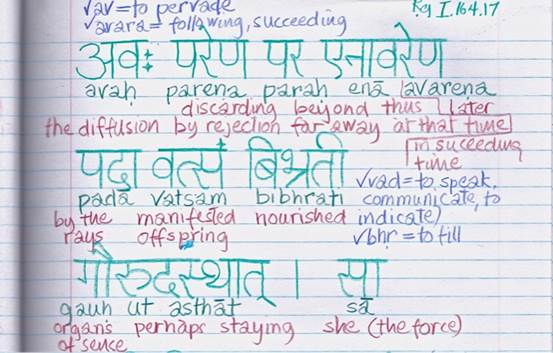 √av=to pervade Rg I.164.17
√avara= following, succeeding
अवः परेण पर एनावरेण
avaḥ parena parah enā avarena
discarding beyond thus later
the diffusion by rejection far away at that time
पदा वत्सं बिभ्रती in suceeding
time
√vad=to speak,
padā vatsam bibhrati communicate, to
by the manifested nourished indicate)
rays offspring √bhr=to till
गौरुदस्थात् । सा
gauh ut asthāt sā
organs perhaps staying she (the force)
of sence